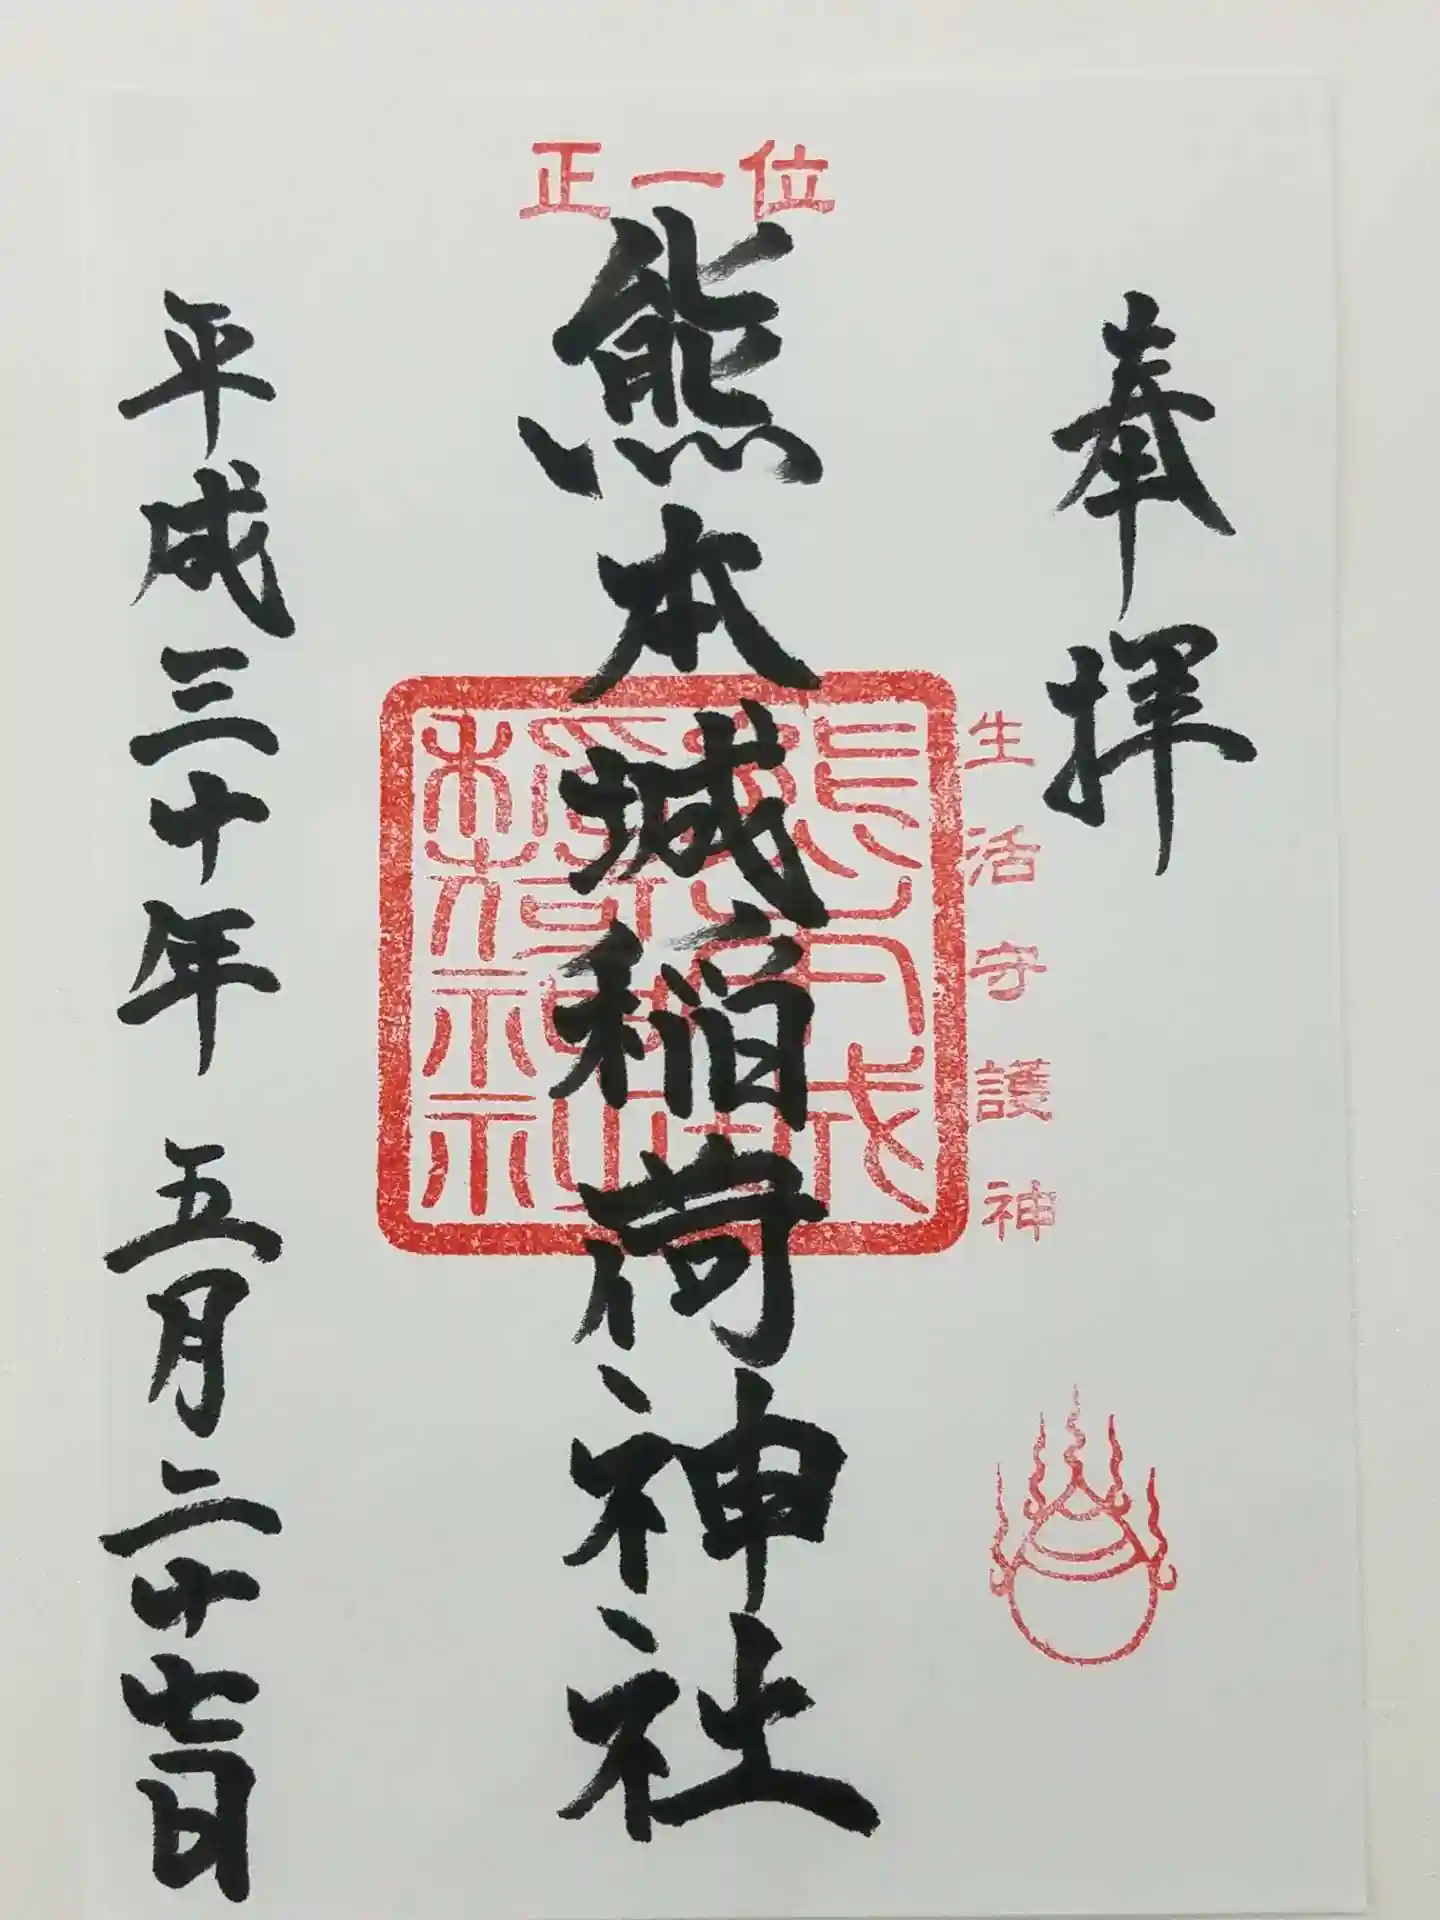 奉拝
生活守護神
正一位
熊本城稲荷神社
熊本城稲荷神社
平成三十年 五月二十七日